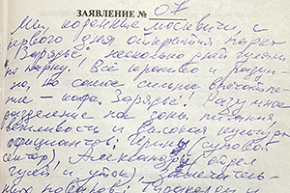 ЗАЯВЛЕНИЕ № 07
Мы, коренные москвичи, с
первого дня открытия парка
"Зарядье" несколько дней гуляем
по парку. Всё красиво, разум-
но, но самое сильное впечатле-
ние – кафе Зарядье! Разумное
разделение на зоны питания,
вежливости и высокая культура
официантов: Ирины (суповой
сектор), Александра (отдел
гуся и утки),
поваров: